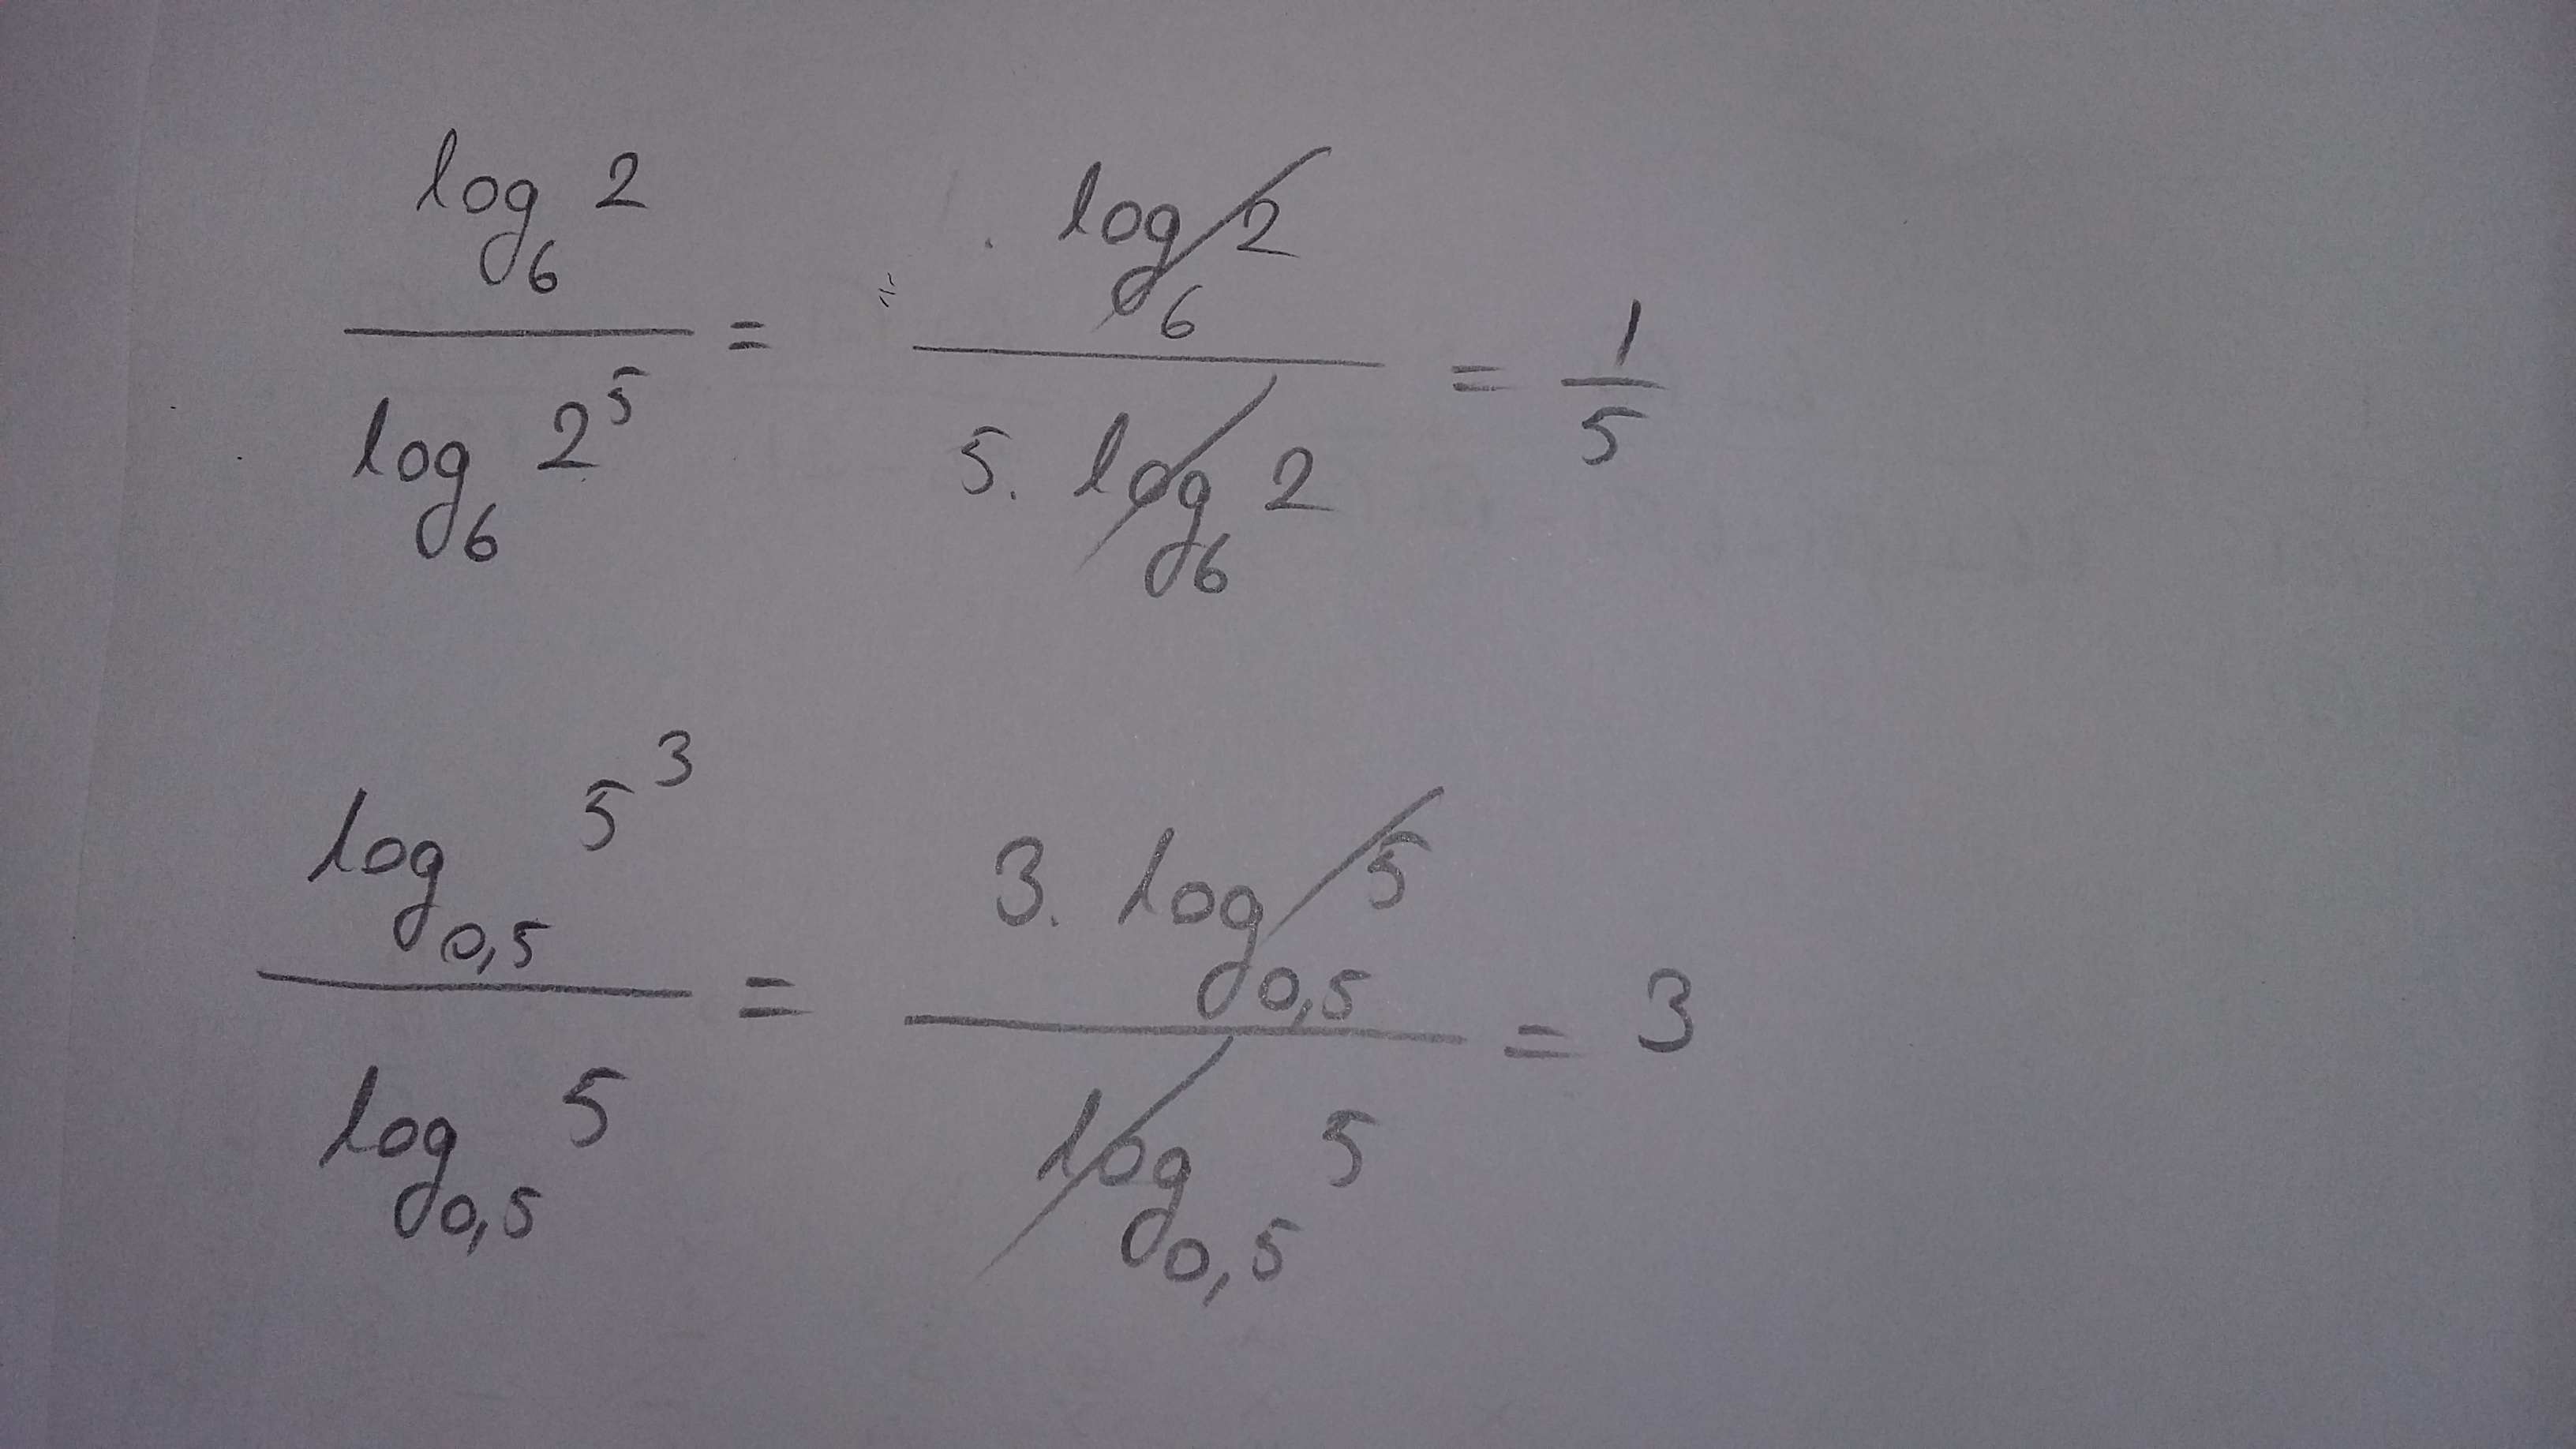 log₆ 2 / log₆ 2⁵ = log₆ 2 / 5. log₆ 2 = 1/5
log₀,₅ 5³ / log₀,₅ 5 = 3. log₀,₅ 5 / log₀,₅ 5 = 3